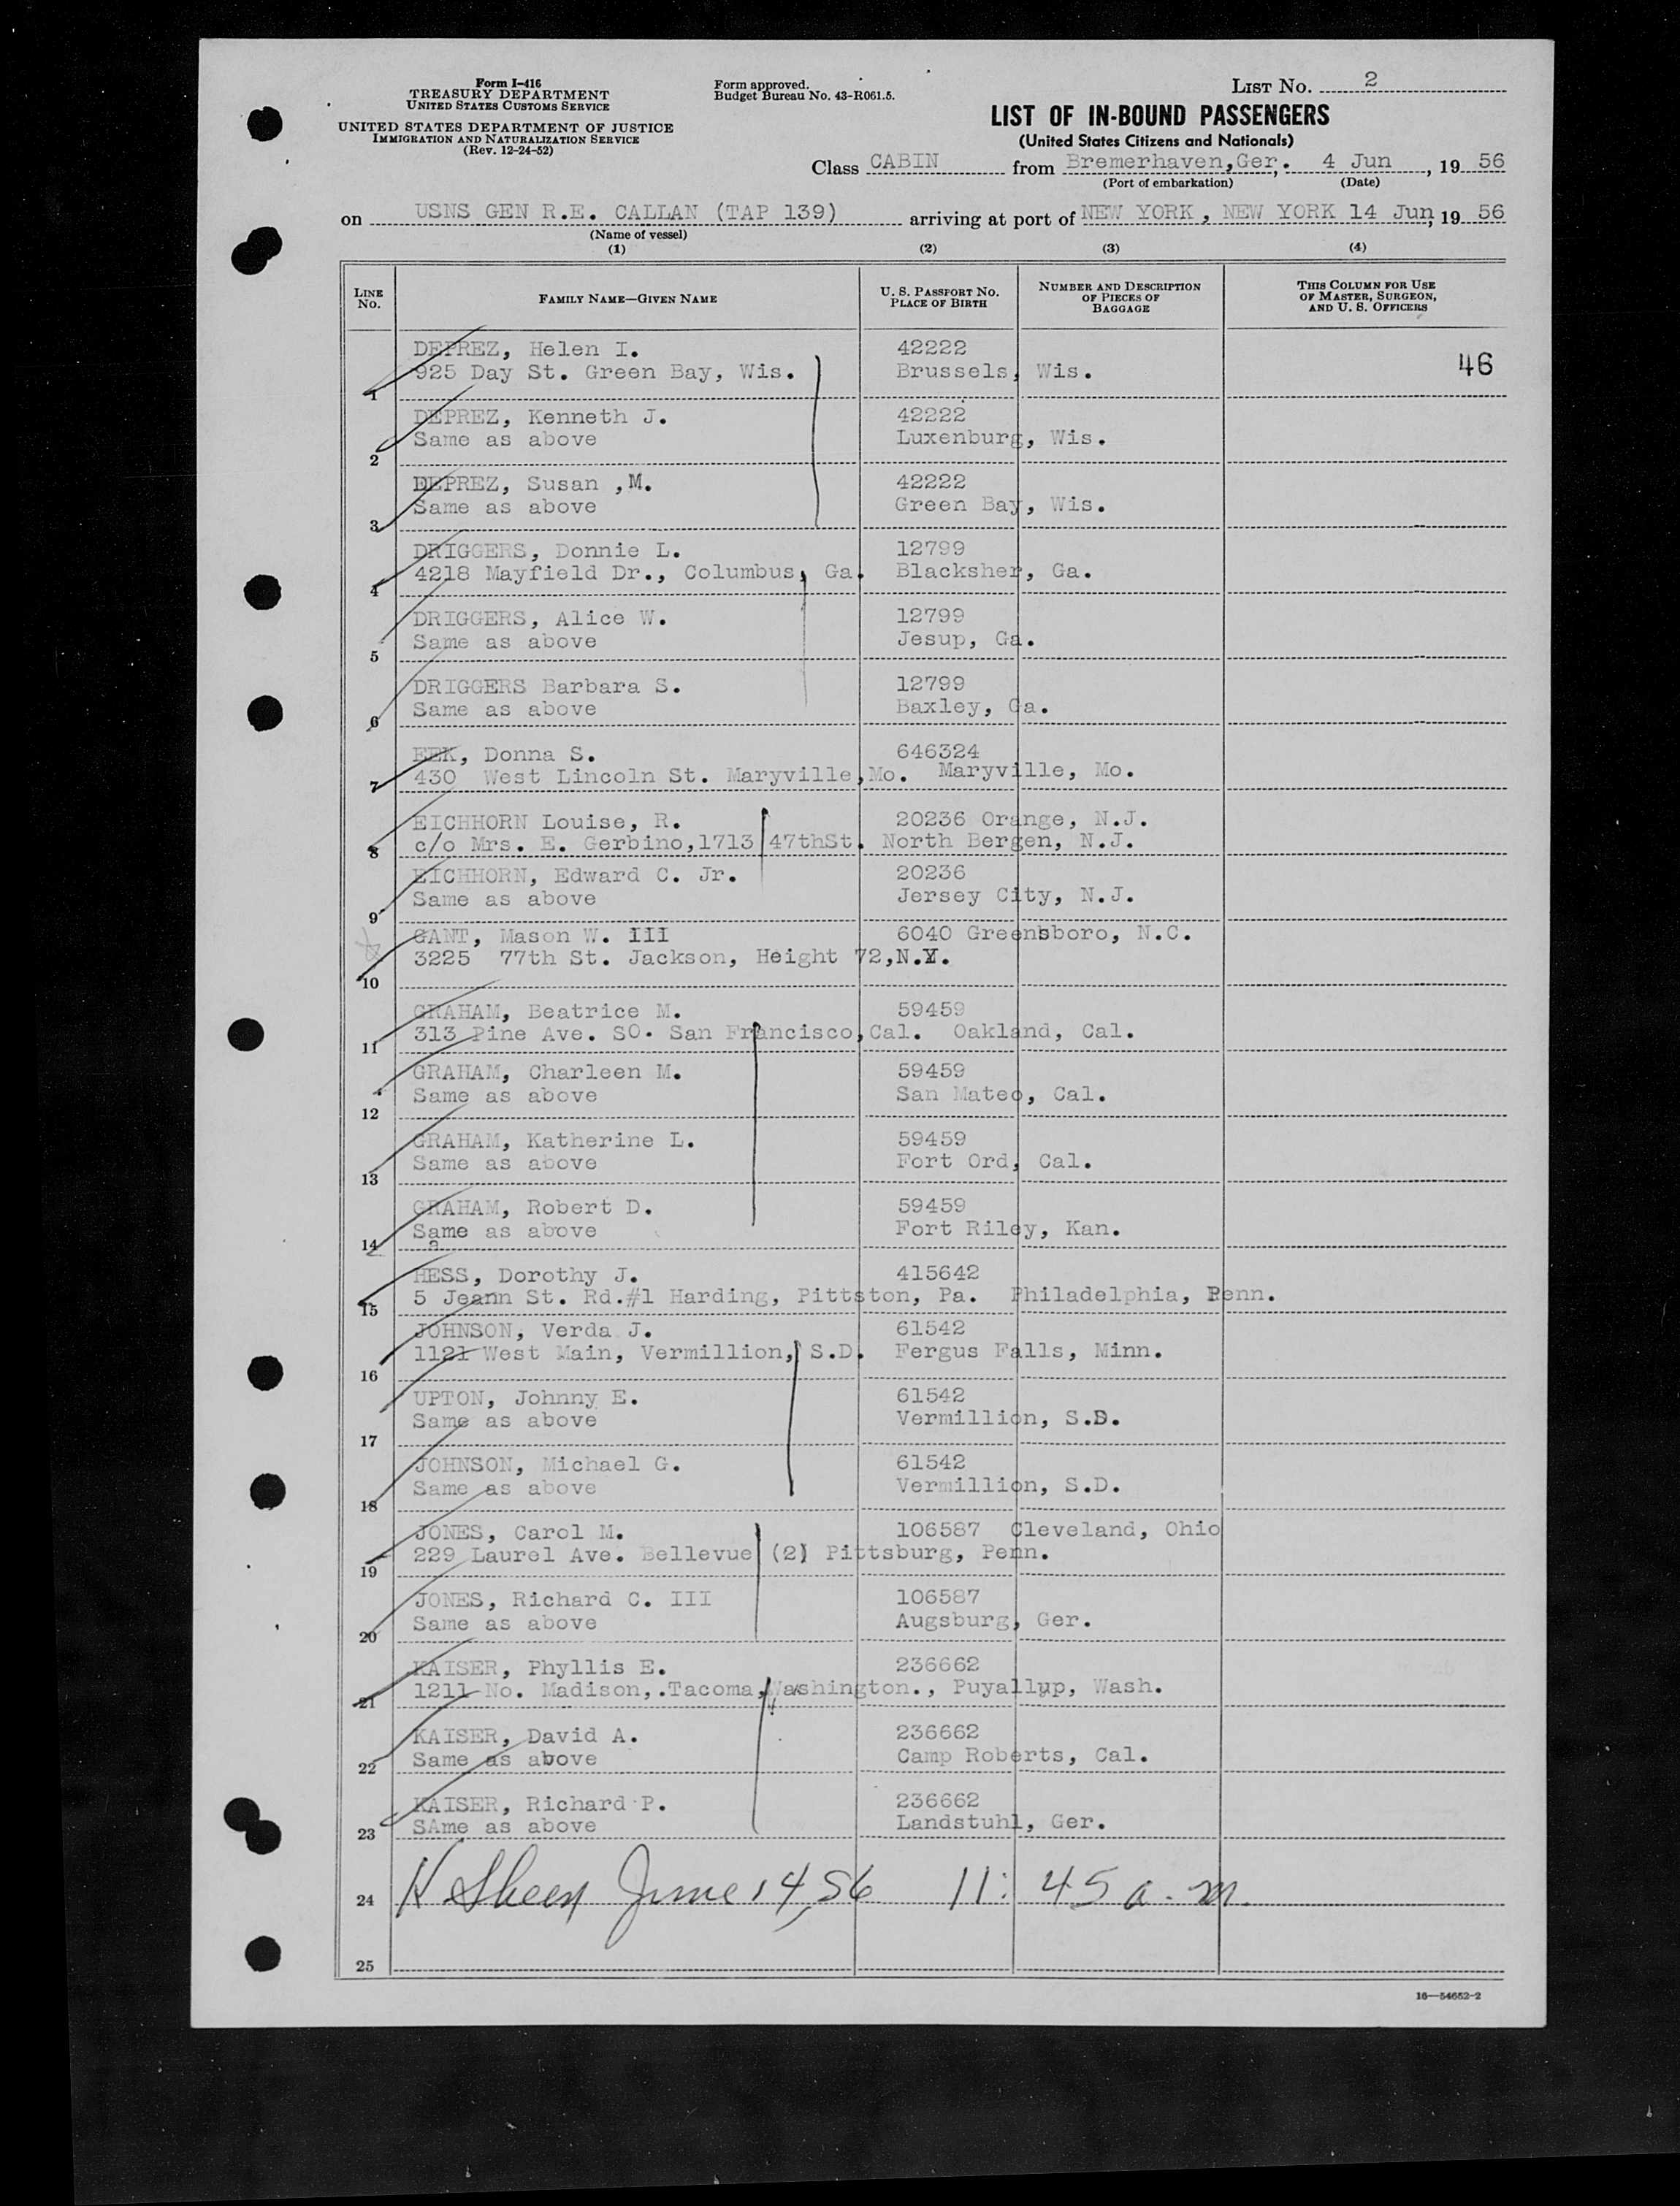 Form I-416
TREASURY DEPARTMENT
UNITED STATES CUSTOMS SERVICE
UNITED STATES DEPARTMENT OF JUSTICE
IMMIGRATION AND NATURALIZATION SERVICE
(Rev. 12-24-52)
Form approved.
Budget Bureau No. 43-R061.5.
LIST No. 2
LIST OF IN-BOUND PASSENGERS
(United States Citizens and Nationals)
Class CABIN from Bremerhaven,Ger., 4 Jun, 1956
(Port of embarkation) (Date)
on USNS GEN R.E. CALLAN (TAP 139) arriving at port of NEW YORK, NEW YORK 14 Jun, 1956
(Name of vessel)
(1) (2) (3) (4)
LINE No. FAMILY NAME—GIVEN NAME U. S. PASSPORT NO. PLACE OF BIRTH NUMBER AND DESCRIPTION OF PIECES OF BAGGAGE THIS COLUMN FOR USE OF MASTER, SURGEON, AND U. S. OFFICERS
DEPREZ, Helen I. 42222
1 925 Day St. Green Bay, Wis. Brussels, Wis. 46
DEPREZ, Kenneth J. 42222
2 Same as above Luxenburg, Wis.
DEPREZ, Susan ,M. 42222
3 Same as above Green Bay, Wis.
DRIGGERS, Donnie L. 12799
4 4218 Mayfield Dr., Columbus, Ga. Blacksher, Ga.
DRIGGERS, Alice W. 12799
5 Same as above Jesup, Ga.
DRIGGERS Barbara S. 12799
6 Same as above Baxley, Ga.
EEK, Donna S. 646324
7 430 West Lincoln St. Maryville,Mo. Maryville, Mo.
EICHHORN Louise, R. 20236 Orange, N.J.
8 c/o Mrs. E. Gerbino,1713 47thSt. North Bergen, N.J.
EICHHORN, Edward C. Jr. 20236
9 Same as above Jersey City, N.J.
GANT, Mason W. III 6040 Greensboro, N.C.
10 3225 77th St. Jackson, Height 72,N.Y.
GRAHAM, Beatrice M. 59459
11 313 Pine Ave. SO. San Francisco,Cal. Oakland, Cal.
GRAHAM, Charleen M. 59459
12 Same as above San Mateo, Cal.
GRAHAM, Katherine L. 59459
13 Same as above Fort Ord, Cal.
GRAHAM, Robert D. 59459
14 Same as above Fort Riley, Kan.
a
HESS, Dorothy J. 415642
15 5 Jeann St. Rd.#1 Harding, Pittston, Pa. Philadelphia, Penn.
JOHNSON, Verda J. 61542
16 1121 West Main, Vermillion, S.D. Fergus Falls, Minn.
UPTON, Johnny E. 61542
17 Same as above Vermillion, S.D.
JOHNSON, Michael G. 61542
18 Same as above Vermillion, S.D.
JONES, Carol M. 106587 Cleveland, Ohio
19 229 Laurel Ave. Bellevue (2) Pittsburg, Penn.
JONES, Richard C. III 106587
20 Same as above Augsburg, Ger.
KAISER, Phyllis E. 236662
21 1211 No. Madison,.Tacoma,Washington., Puyallup, Wash.
KAISER, David A. 236662
22 Same as above Camp Roberts, Cal.
KAISER, Richard P. 236662
23 SAme as above Landstuhl, Ger.
24 June 14, 56 11:45 a.m.
25
16—54652-2